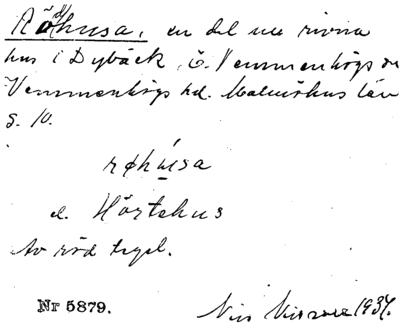 Rödhusa, en del nu rivna
hus i Dybäck, Ö. Vemmenhögs sn
Vemmenhögs hd. Malmöhus län
s. 10.
røhusa
el. Hörtehus
Av röd tegel.
Nr 5879.
1934.